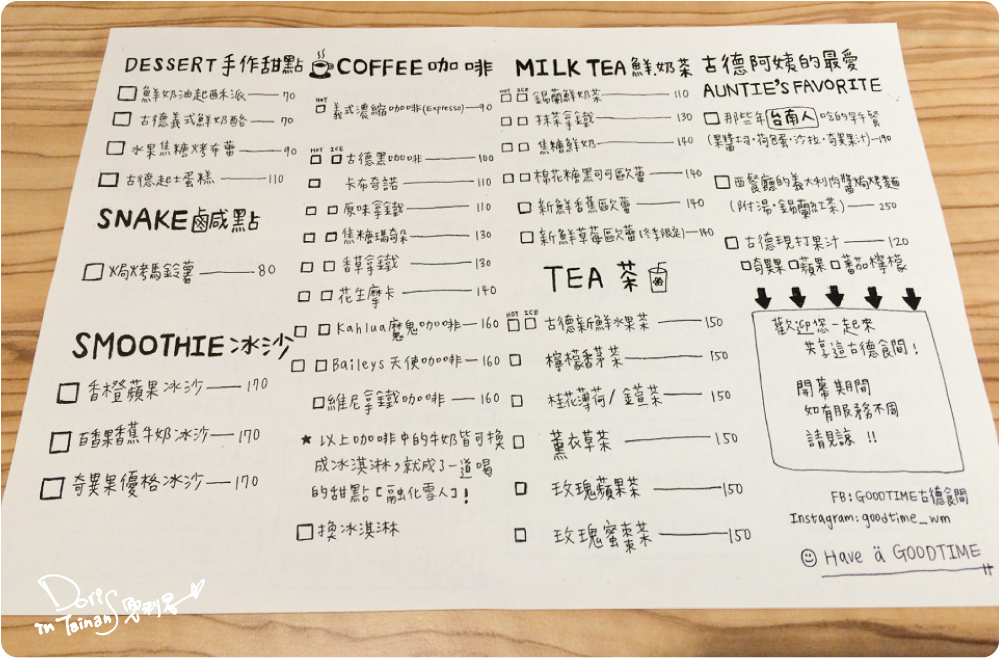 DESSERT 手作甜點
鮮奶油起酥派 70
古德義式鮮奶酪 70
水果焦糖烤布蕾 90
古德起士蛋糕 110
SNAKE 鹹點
焗烤馬鈴薯 80
SMOOTHIE 冰沙
香橙蘋果冰沙 170
百香果香蕉牛奶冰沙 170
奇異果優格冰沙 170
COFFEE 咖啡
HOT
義式濃縮咖啡(Expresso) 90
HOT ICE
古德黑咖啡 100
卡布奇諾 110
原味拿鐵 110
焦糖瑪奇朵 130
香草拿鐵 130
花生摩卡 140
Kahlua魔鬼咖啡 160
Baileys天使咖啡 160
維尼拿鐵咖啡 160
★ 以上咖啡中的牛奶皆可換
成冰淇淋,就成了一道喝
的甜點[融化雪人]!
換冰淇淋
MILK TEA 鮮奶茶
HOT ICE
錫蘭鮮奶茶 110
抹茶拿鐵 130
焦糖鮮奶 140
棉花糖黑可可歐蕾 140
新鮮香蕉歐蕾 140
新鮮草莓歐蕾(冬季限定) 140
TEA 茶
HOT ICE
古德新鮮水果茶 150
檸檬香茅茶 150
桂花薄荷/萱茶 150
薰衣草茶 150
玫瑰蘋果茶 150
玫瑰蜜棗茶 150
古德阿姨的最愛
AUNTIE'S FAVORITE
那些年台南人啥的早午餐
(果醬土司·荷包蛋·沙拉·奇異果汁) 190
西餐廳的義大利肉醬焗烤麵
(附湯·錫蘭紅茶) 250
古德現打果汁 120
奇異果 蘋果 蕃茄檸檬
歡迎您一起來
共享這古德食間!
開幕期間
如有服務不周
請見諒 !!
FB: GOODTIME古德食間
Instagram: goodtime_wm
Have a GOODTIME
Doris
in Tainan